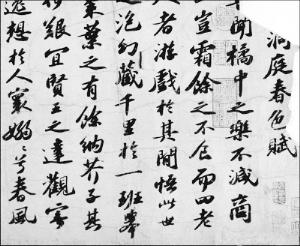 洞庭春色賦
吾聞橘中之樂不減商
豈霜餘之不食而四老
人者游戲於其間悟此世
之泡幻藏千里於一班舉
棗葉之有餘納芥子其
何艱宜賢王之達觀寄
逸想於人寰嫋〻兮春風